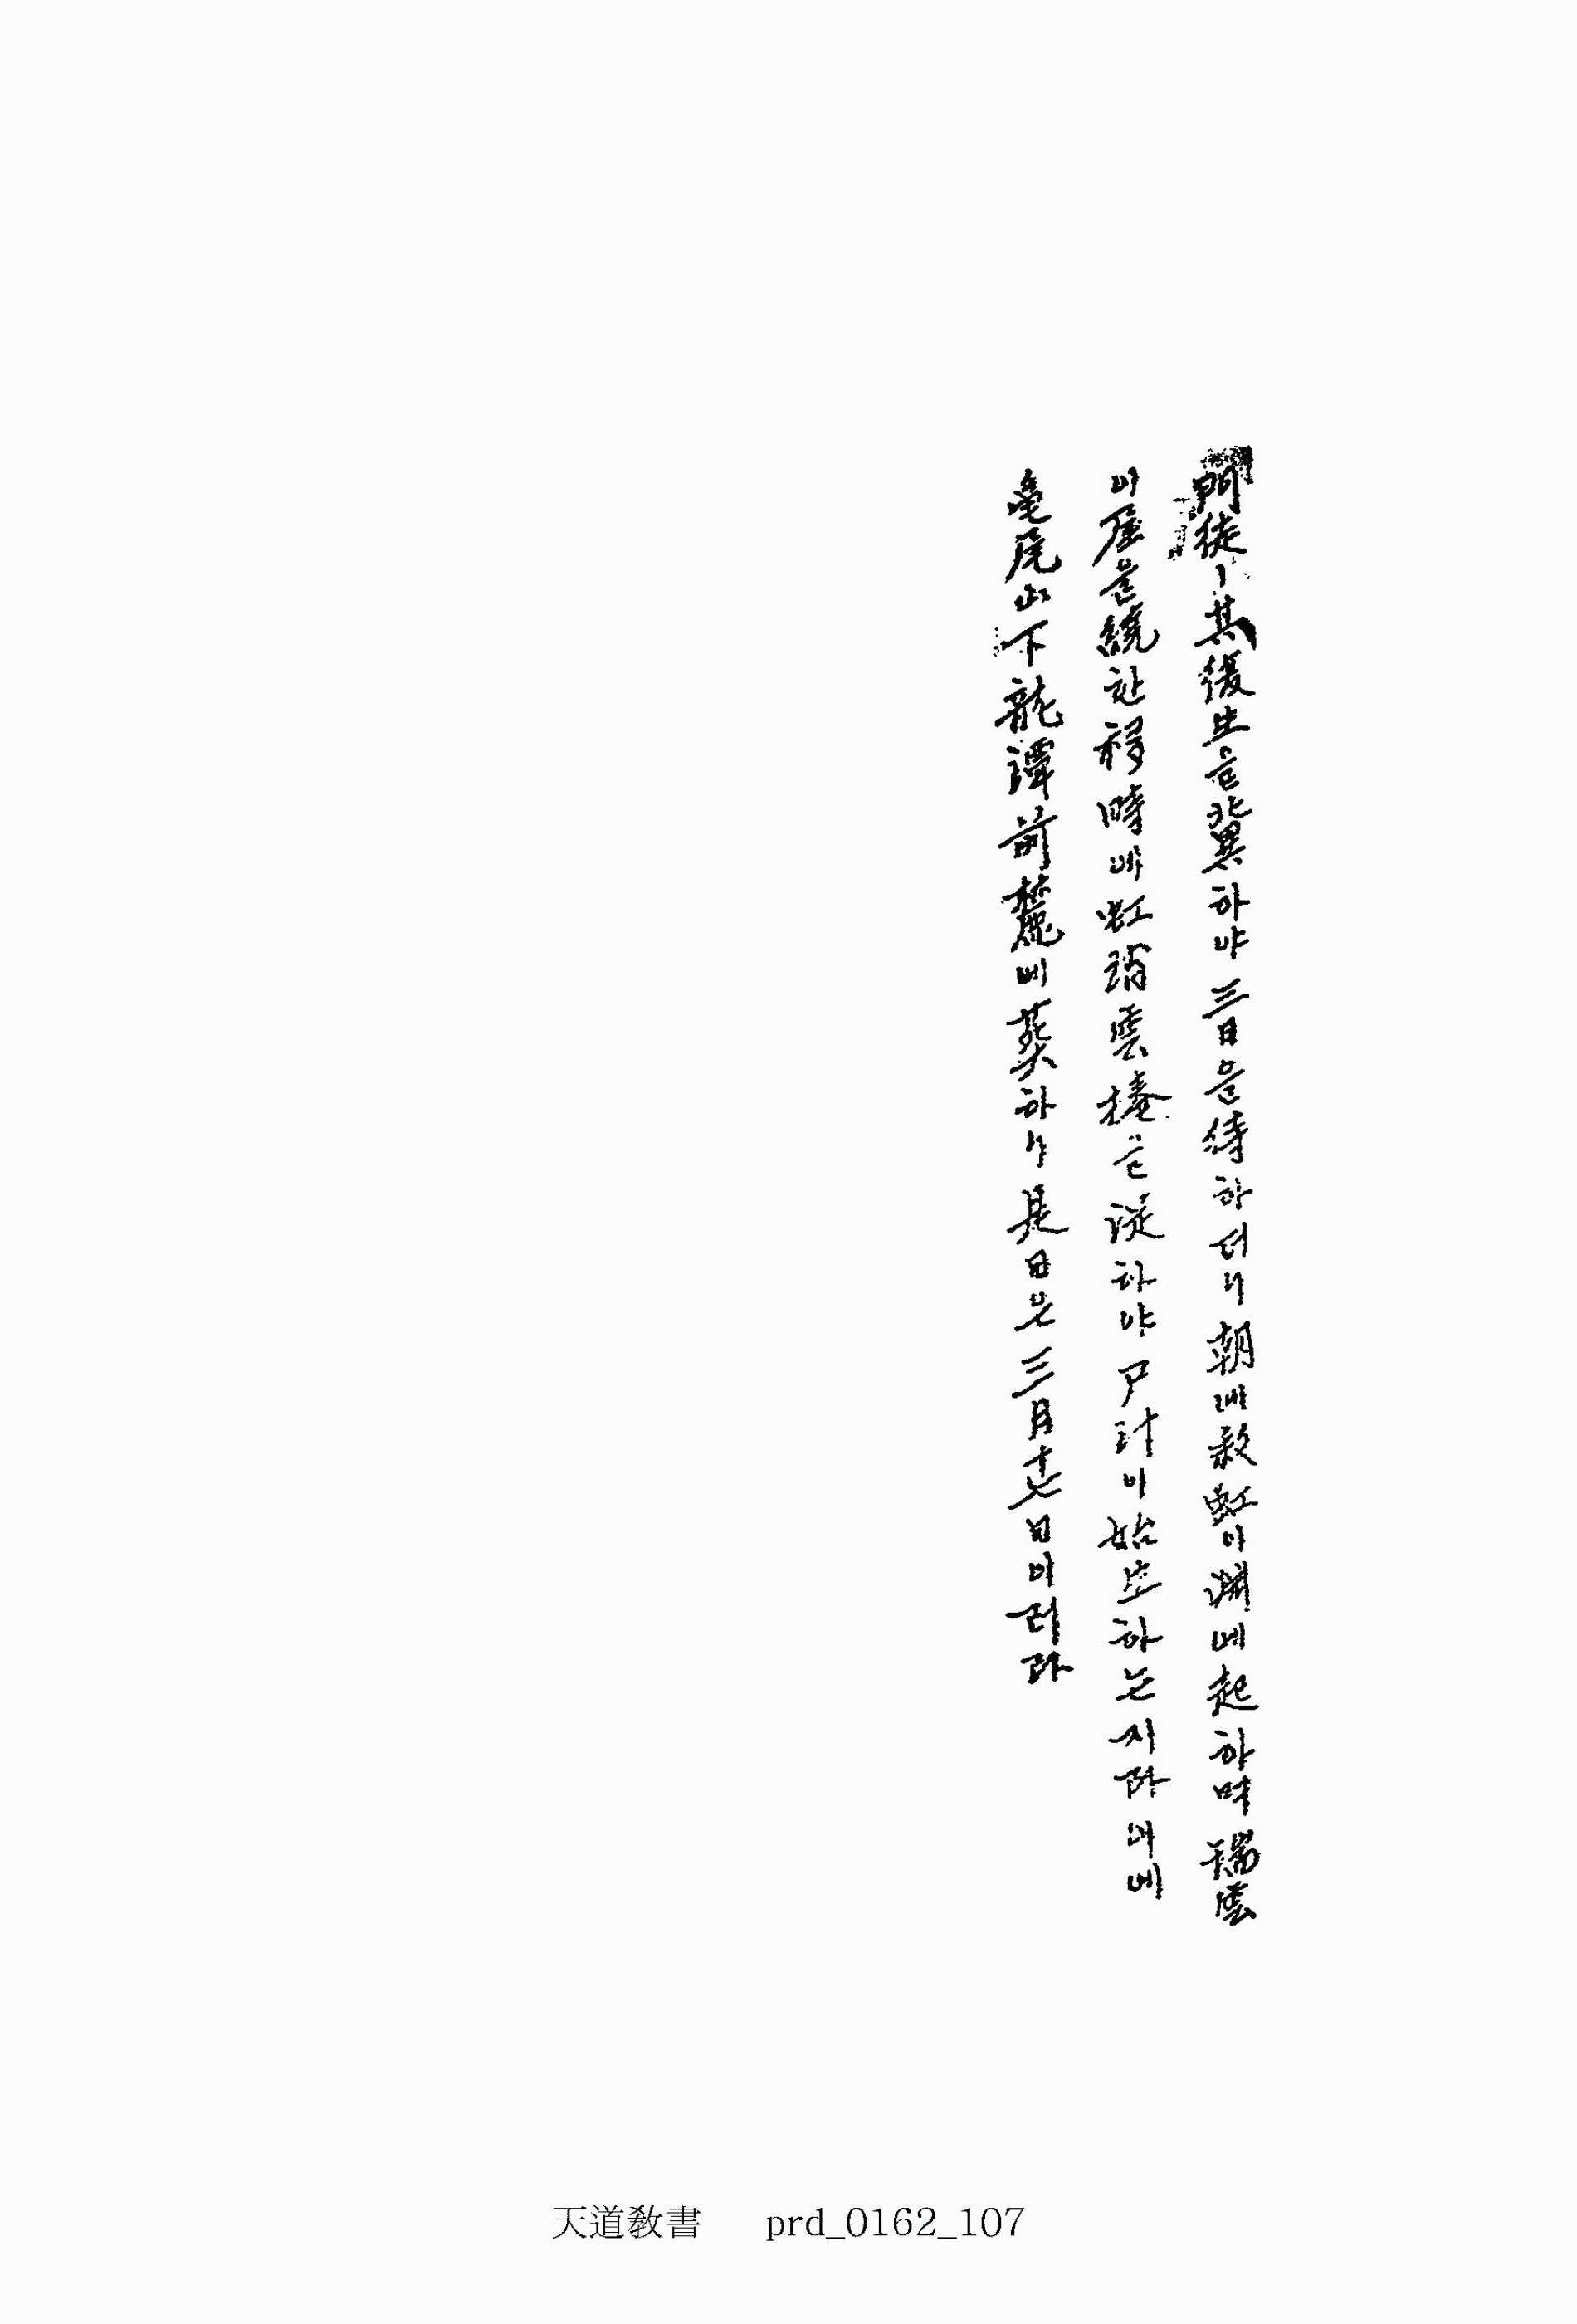 門徒ㅣ其復生을冀하야三日을待하더니朝애彩虹이淵에起하며瑞雲
이屋을繞한移時애虹消雲捲을從하야尸汁이始生하는지라이에
龜尾山下龍潭前麓에葬하니是日은三月十七日이러라
天道敎書 prd_0162_107